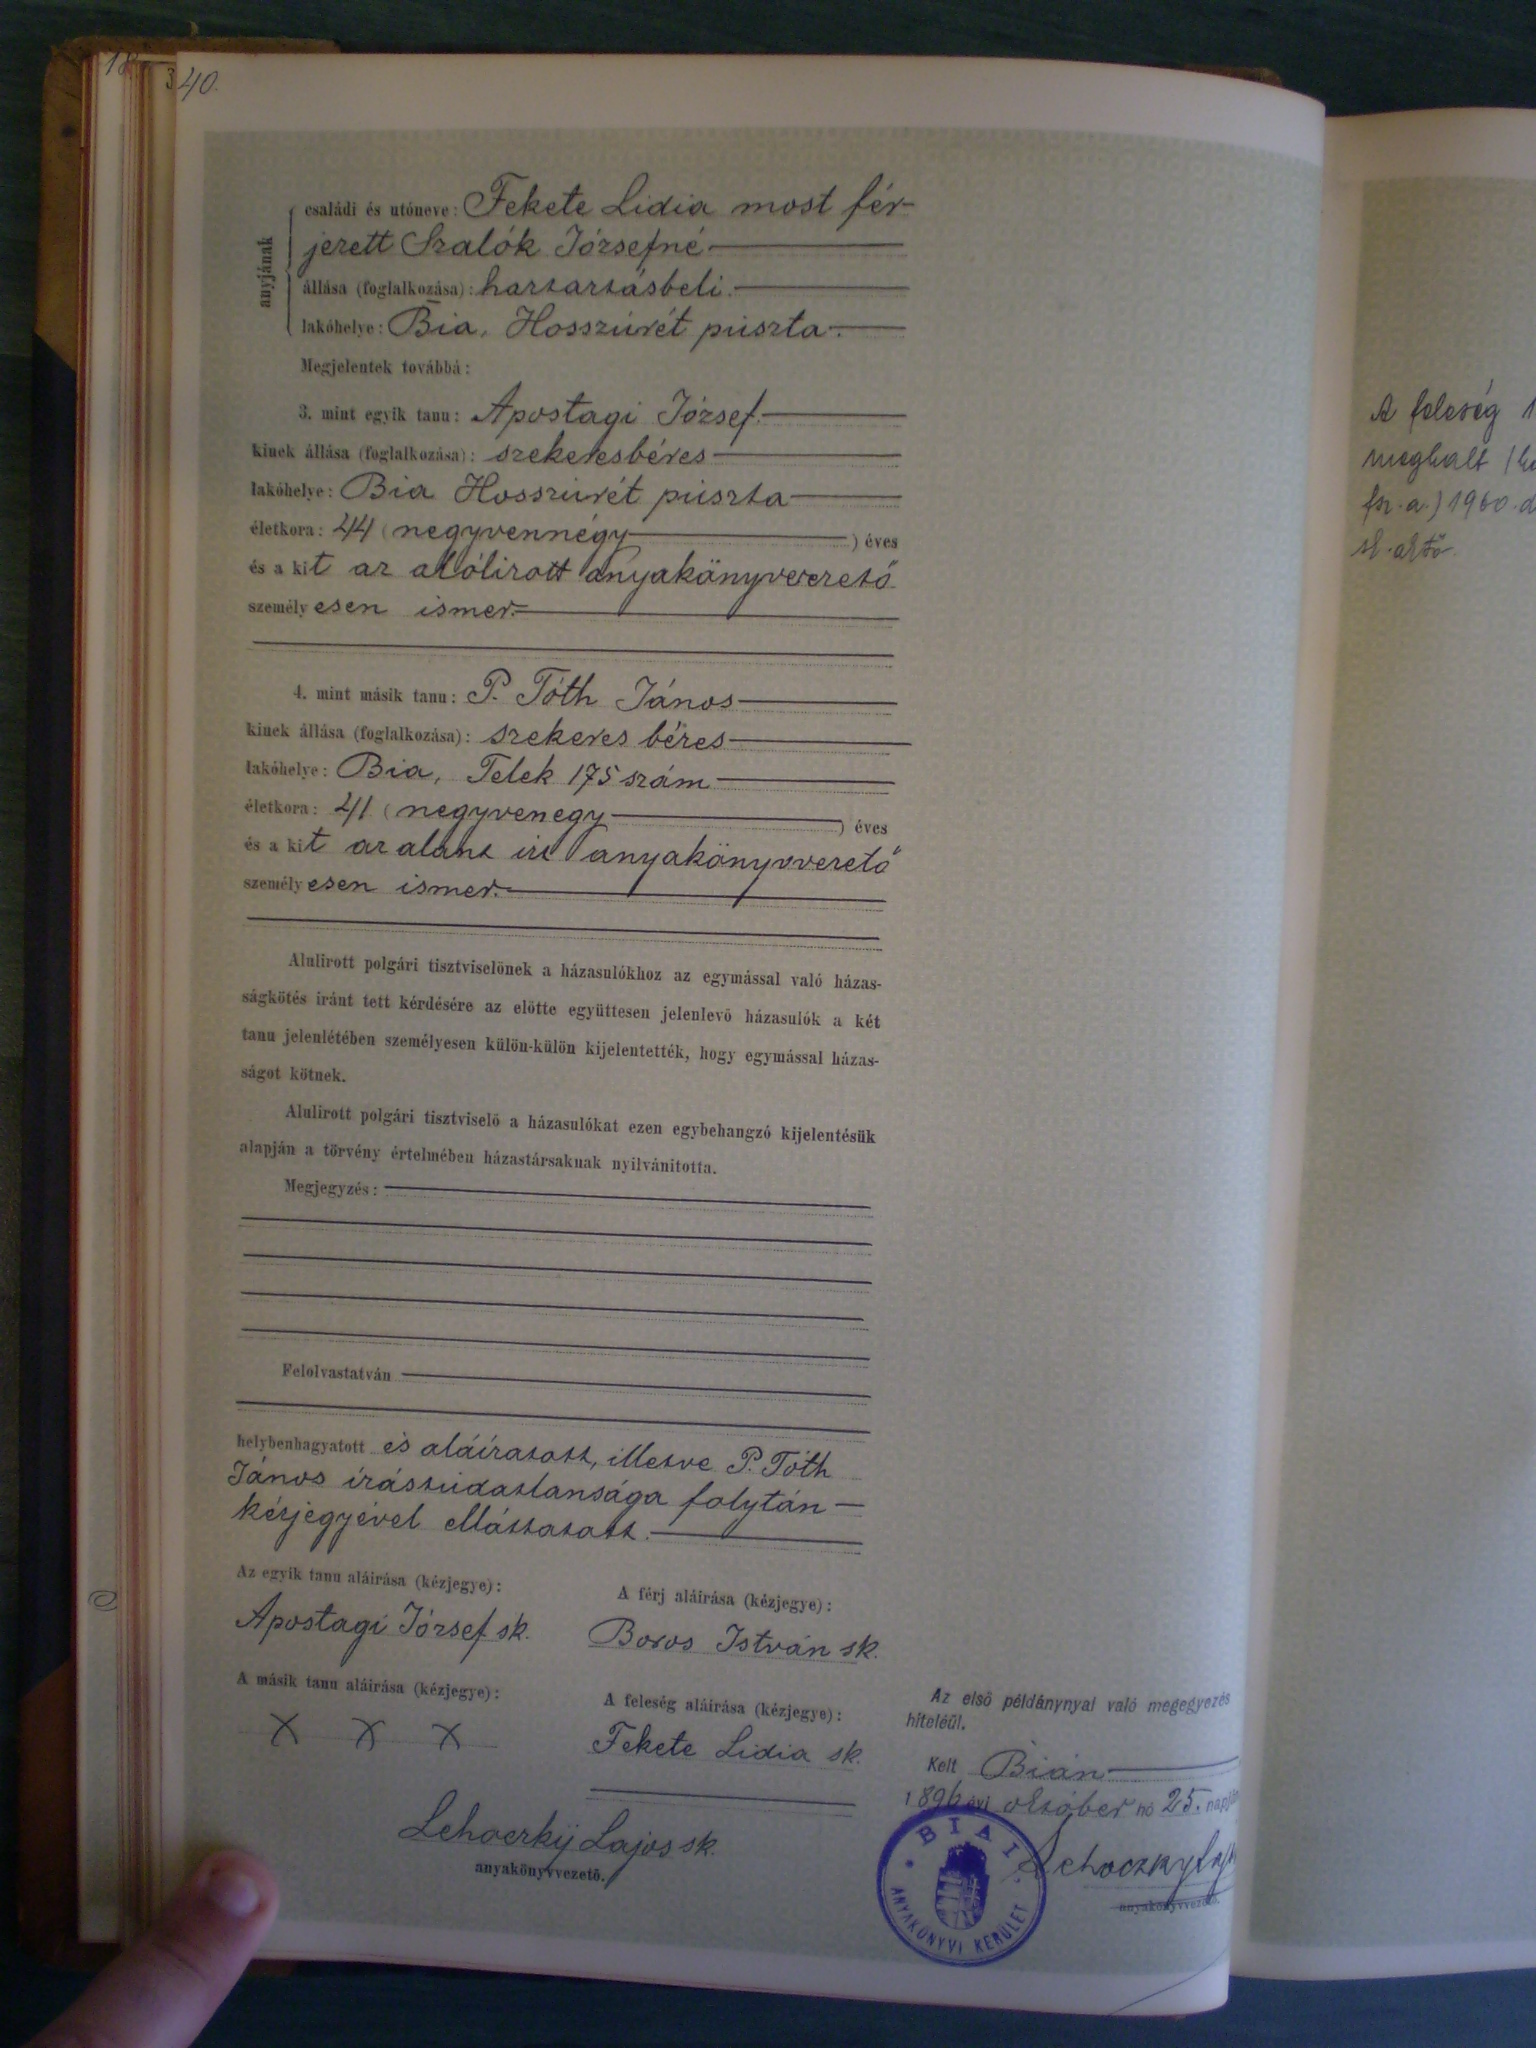 18
3
40.
anyjának
családi és utóneve: Fekete Lidia most fér-
jezett Szalók Józsefné
állása (foglalkozása): háztartásbeli.
lakóhelye: Bia, Hosszúrét púszta.
Megjelentek továbbá:
3. mint egyik tanu: Apostagi József.
kinek állása (foglalkozása): szekeresbéres
lakóhelye: Bia Hosszúrét púszta
életkora: 44 (negyvennégy) éves
és a kit az alólirott anyakönyvvezető
személyesen ismer.
4. mint másik tanu: P. Tóth János
kinek állása (foglalkozása): szekeres béres
lakóhelye: Bia, Telek 175 szám
életkora: 41 (negyvenegy) éves
és a kit az alant irt anyakönyvvezető
személyesen ismer.
Alulirott polgári tisztviselőnek a házasulókhoz az egymással való házas-
ságkötés iránt tett kérdésére az előtte együttesen jelenlevő házasulók a két
tanu jelenlétében személyesen külön-külön kijelentették, hogy egymással házas-
ságot kötnek.
Alulirott polgári tisztviselő a házasulókat ezen egybehangzó kijelentésük
alapján a törvény értelmében házastársaknak nyilvánitotta.
Megjegyzés:
Felolvastatván
helybenhagyatott és aláíratott, illetve P. Tóth
János írástúdatlansága folytán
kézjegyével elláttatott.
Az egyik tanu aláirása (kézjegye):
Apostagi József sk.
A férj aláirása (kézjegye):
Boros István sk.
A másik tanu aláirása (kézjegye):
X X X
A feleség aláirása (kézjegye):
Fekete Lidia sk.
Lehoczky Lajos sk.
anyakönyvvezető.
Az első példánynyal való megegyezés
hiteléül.
Kelt Bián
1896 évi október hó 25. napján
Lehoczky Lajos
anyakönyvvezető.
BIAI
ANYAKÖNYVI KERÜLET
A feleség 1
meghalt
a.) 1960. d